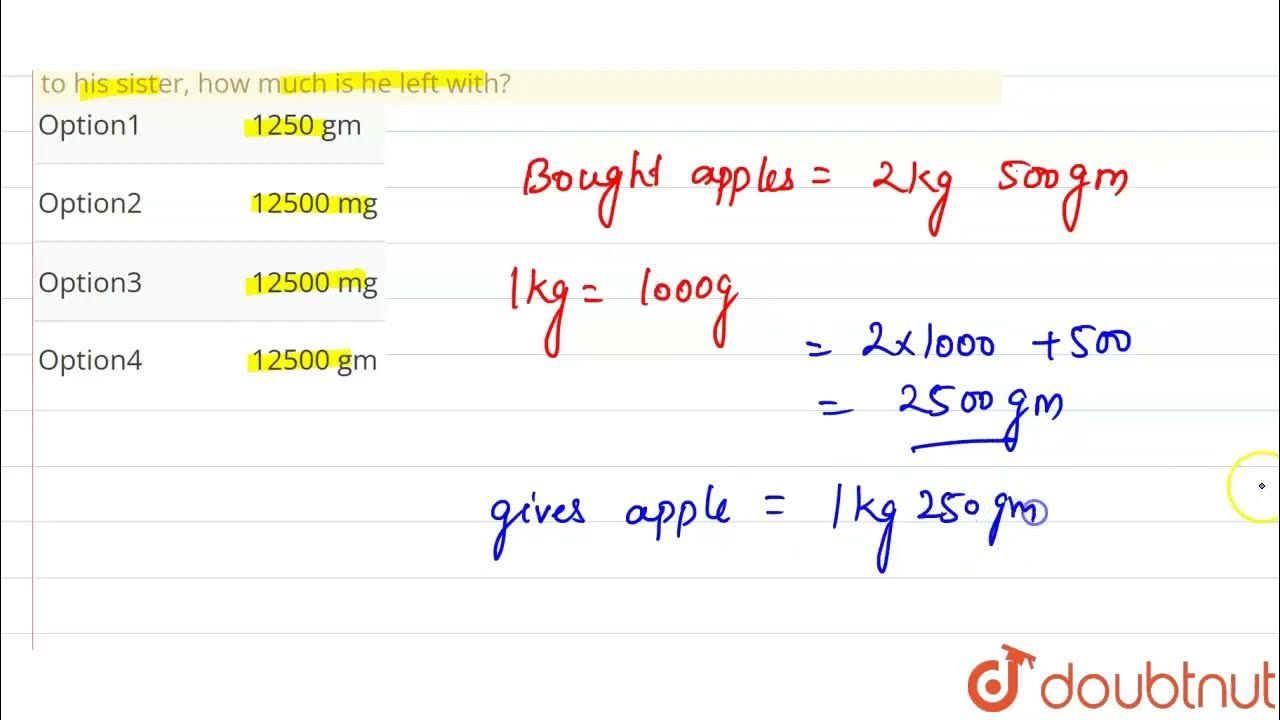 to his sister, how much is he left with?
Option1 1250 gm
Option2 12500 mg
Option3 12500 mg
Option4 12500 gm
Bought apples = 2kg 500gm
1kg = 1000g
= 2×1000 +500
= 2500gm
gives apple = 1kg 250gm
doubtnut